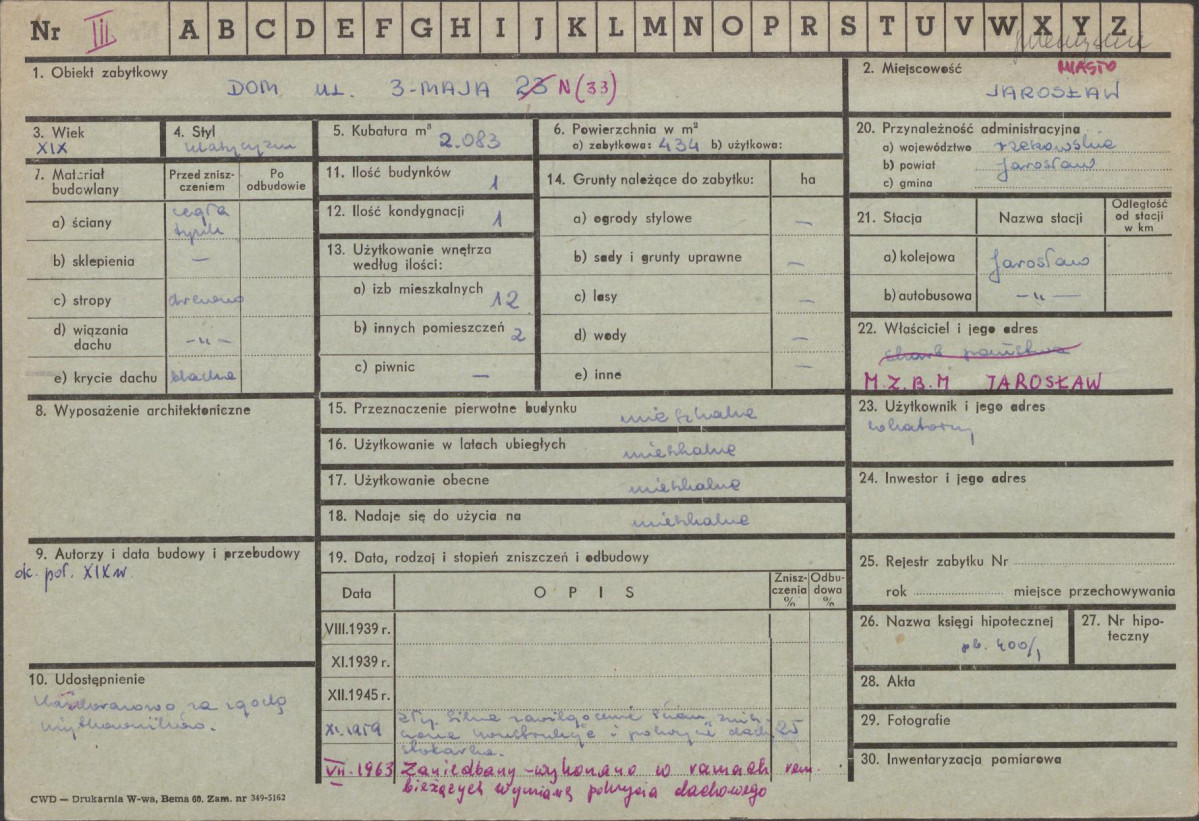 Nr III A B C D E F G H I J K L M N O P R S T U V W X Y Z
1. Obiekt zabytkowy
DOM UL. 3-MAJA 23 N(33)
2. Miejscowość MIASTO
JAROSŁAW
3. Wiek
XIX
4. Styl
klasycyzm
5. Kubatura m³
2.083
6. Powierzchnia w m²
a) zabytkowa: 434 b) użytkowa:
7. Materiał budowlany
Przed znisz-
czeniem
Po
odbudowie
a) ściany cegła
tynk
b) sklepienia —
c) stropy drewno
d) wiązania
dachu —„—
e) krycie dachu blacha
8. Wyposażenie architektoniczne
9. Autorzy i data budowy i przebudowy
ok. poł. XIX w.
10. Udostępnienie
za zgodą
użytkowników.
11. Ilość budynków 1
12. Ilość kondygnacji 1
13. Użytkowanie wnętrza
według ilości:
a) izb mieszkalnych 12
b) innych pomieszczeń 2
c) piwnic —
14. Grunty należące do zabytku: ha
a) ogrody stylowe —
b) sady i grunty uprawne —
c) lasy —
d) wody —
e) inne —
15. Przeznaczenie pierwotne budynku mieszkalne
16. Użytkowanie w latach ubiegłych mieszkalne
17. Użytkowanie obecne mieszkalne
18. Nadaje się do użycia na mieszkalne
19. Data, rodzaj i stopień zniszczeń i odbudowy
Data OPIS Znisz-
czenia
%
Odbu-
dowa
%
VIII.1939 r.
XI.1939 r.
XII.1945 r.
XI.1959 zły. Silne zawilgocenie ścian, znisz-
czona konstrukcja i pokrycie dachu, 25
stolarka.
VII.1963 Zaniedbany - wykonano w ramach rem.
bieżących wymianę pokrycia dachowego
20. Przynależność administracyjna
a) województwo rzeszowskie
b) powiat Jarosław
c) gmina
21. Stacja Nazwa stacji Odległość
od stacji
w km
a) kolejowa Jarosław
b) autobusowa —„—
22. Właściciel i jego adres
skarb państwa
M.Z.B.M JAROSŁAW
23. Użytkownik i jego adres
lokatorzy
24. Inwestor i jego adres
25. Rejestr zabytku Nr
rok miejsce przechowywania
26. Nazwa księgi hipotecznej
pb. 400/1
27. Nr hipo-
teczny
28. Akta
29. Fotografie
30. Inwentaryzacja pomiarowa
CWD — Drukarnia W-wa, Bema 60. Zam. nr 349-5162